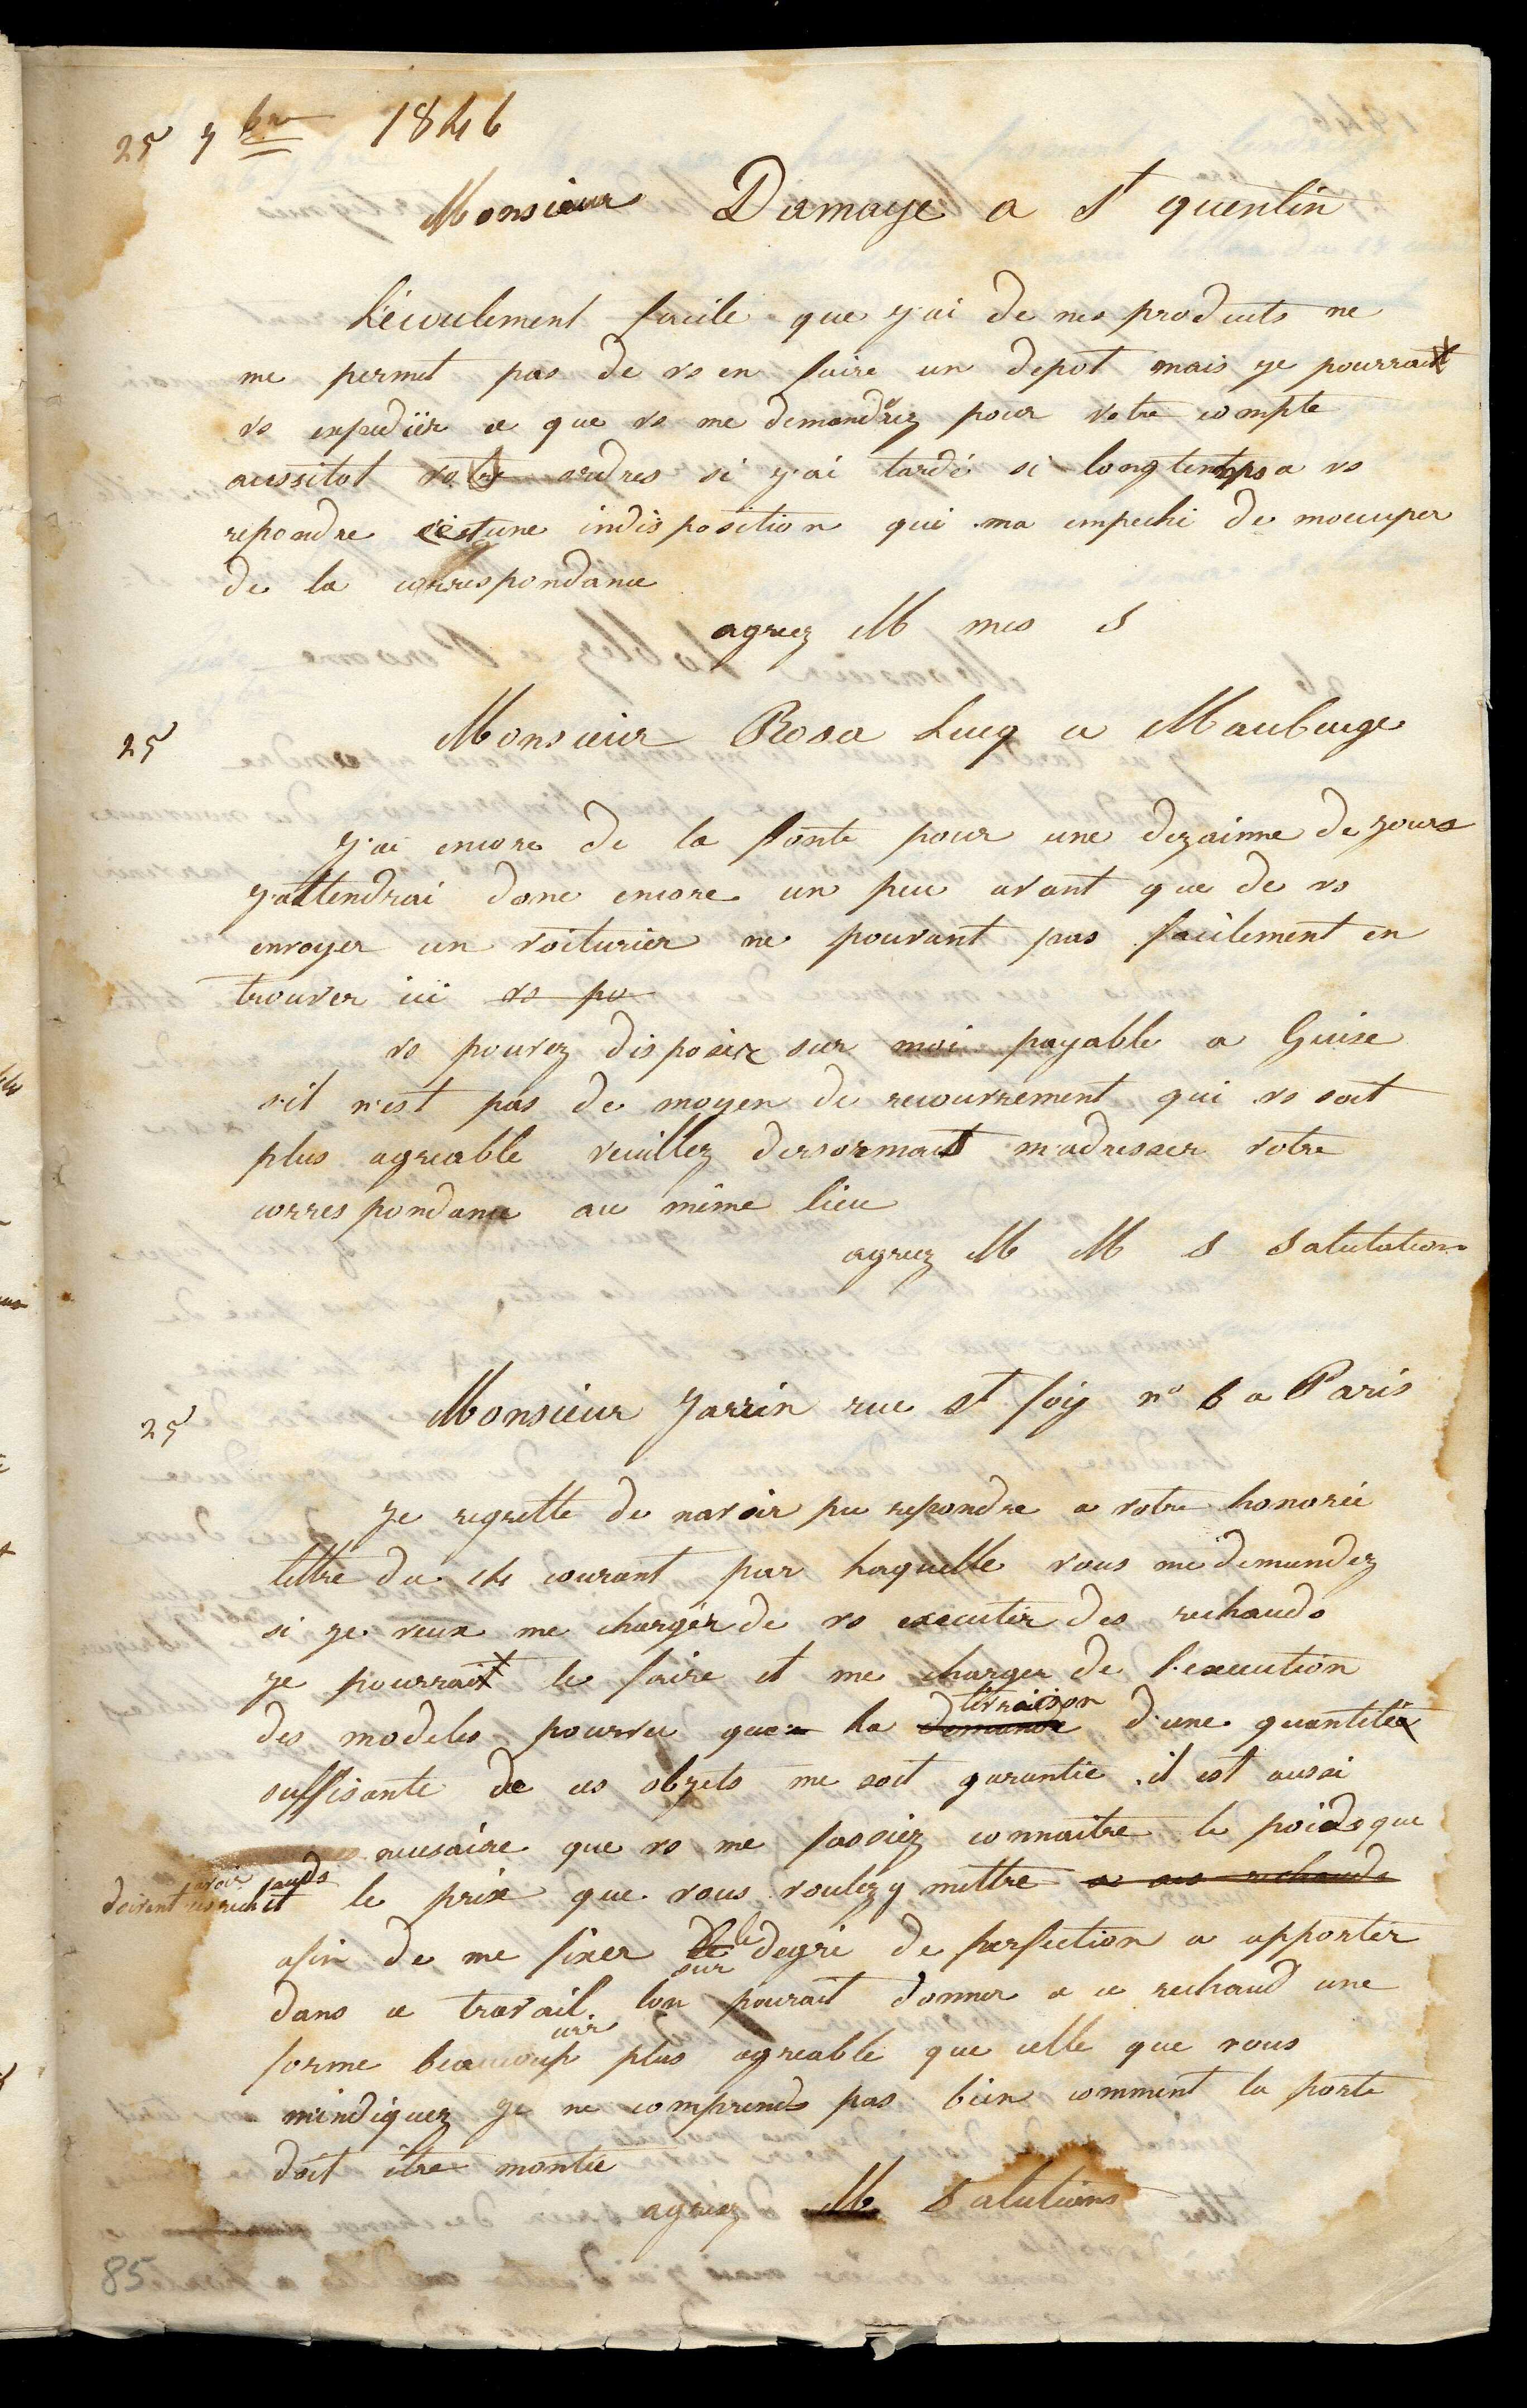 25 7bre 1846
Monsieur Damaye a St quentin
L'écoulement facile que j'ai de mes produits ne
me permet pas de vs en faire un depot mais je pourrait
vs expediér ce que vs me demanderez pour votre compte
aussitot votre ordres si j'ai tardé si longtemps a vs
repondre c'est une indisposition qui ma empeché de moccuper
de la correspondance
agreez M mes S
25 Monsieur Rosa Lucq a Maubeuge
J'ai encore de la fonte pour une dezainne de jours
j'attendrai donc encore un peu avant que de vs
envoyer un voiturier ne pouvant pas facilement en
trouver ici vs po
vs pouvez disposér sur moi payable a Guise
s'il n'est pas de moyen de recouvrement qui vs soit
plus agreable veuillez dersormais m'adresser votre
correspondance au même lieu
agreez M M S Salutation
25 Monsieur Jarrin rue St foy no 6 a Paris
Je regrette de navoir pu repondre a votre honorée
lettre du 14 courant par laquelle vous me demandez
si je veux me chargér de vs executer des rechauds
je pourrait le faire et me charger de l'execution
des modeles pourvu que la demande livraison d'une quantitée
suffisante de ces objets me soit garantie . il est aussi
necusaire que vs me fassiez connaitre le poids que
doivent avoir ces rechauds et le prix que vous voulez y mettre a ces rechauds
afin de me fixer sur le degré de perfection a apporter
dans ce travail. lon pourait donner a ce rechaud une
forme beaucoup plus agreable que celle que vous
m'indiquez je ne comprends pas bien comment la porte
doit être montée
agreez M Salutions
85